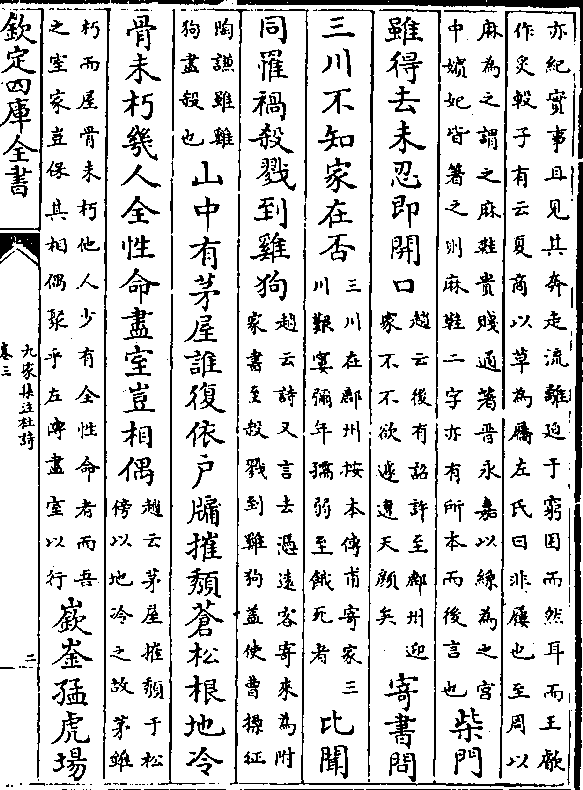 亦紀實事且見其奔走流離迫于窮困而然耳而王叡
作炙轂子有云夏商以草為屩左氏曰非屨也至周以
麻為之謂之麻鞋貴賤通著晉永嘉以絲為之宮
中嬪妃皆著之則麻鞋二字亦有所本而後言也
柴門
雖得去未忍即開口
趙云後有詔許至鄜州迎
家不不欲遽違天顏矣
寄書問
三川不知家在否
三川在鄜州按本傳甫寄家三
川艱窶彌年孺弱至餓死者
比聞
同罹禍殺戮到雞狗
趙云詩又言去憑遠客寄來為附
家書至殺戮到雞狗蓋使曹操征
陶謙雖雞
狗盡殺也
山中有茅屋誰復依戶牖摧頹蒼松根地冷
骨未朽幾人全性命盡室豈相偶
趙云茅屋摧頹于松
傍以地冷之故茅雖
朽而屋骨未朽他人少有全性命者而吾
之室家豈保其相偶聚乎左傳盡室以行
嶔崟猛虎場
欽定四庫全書
九家集注杜詩
卷三
二